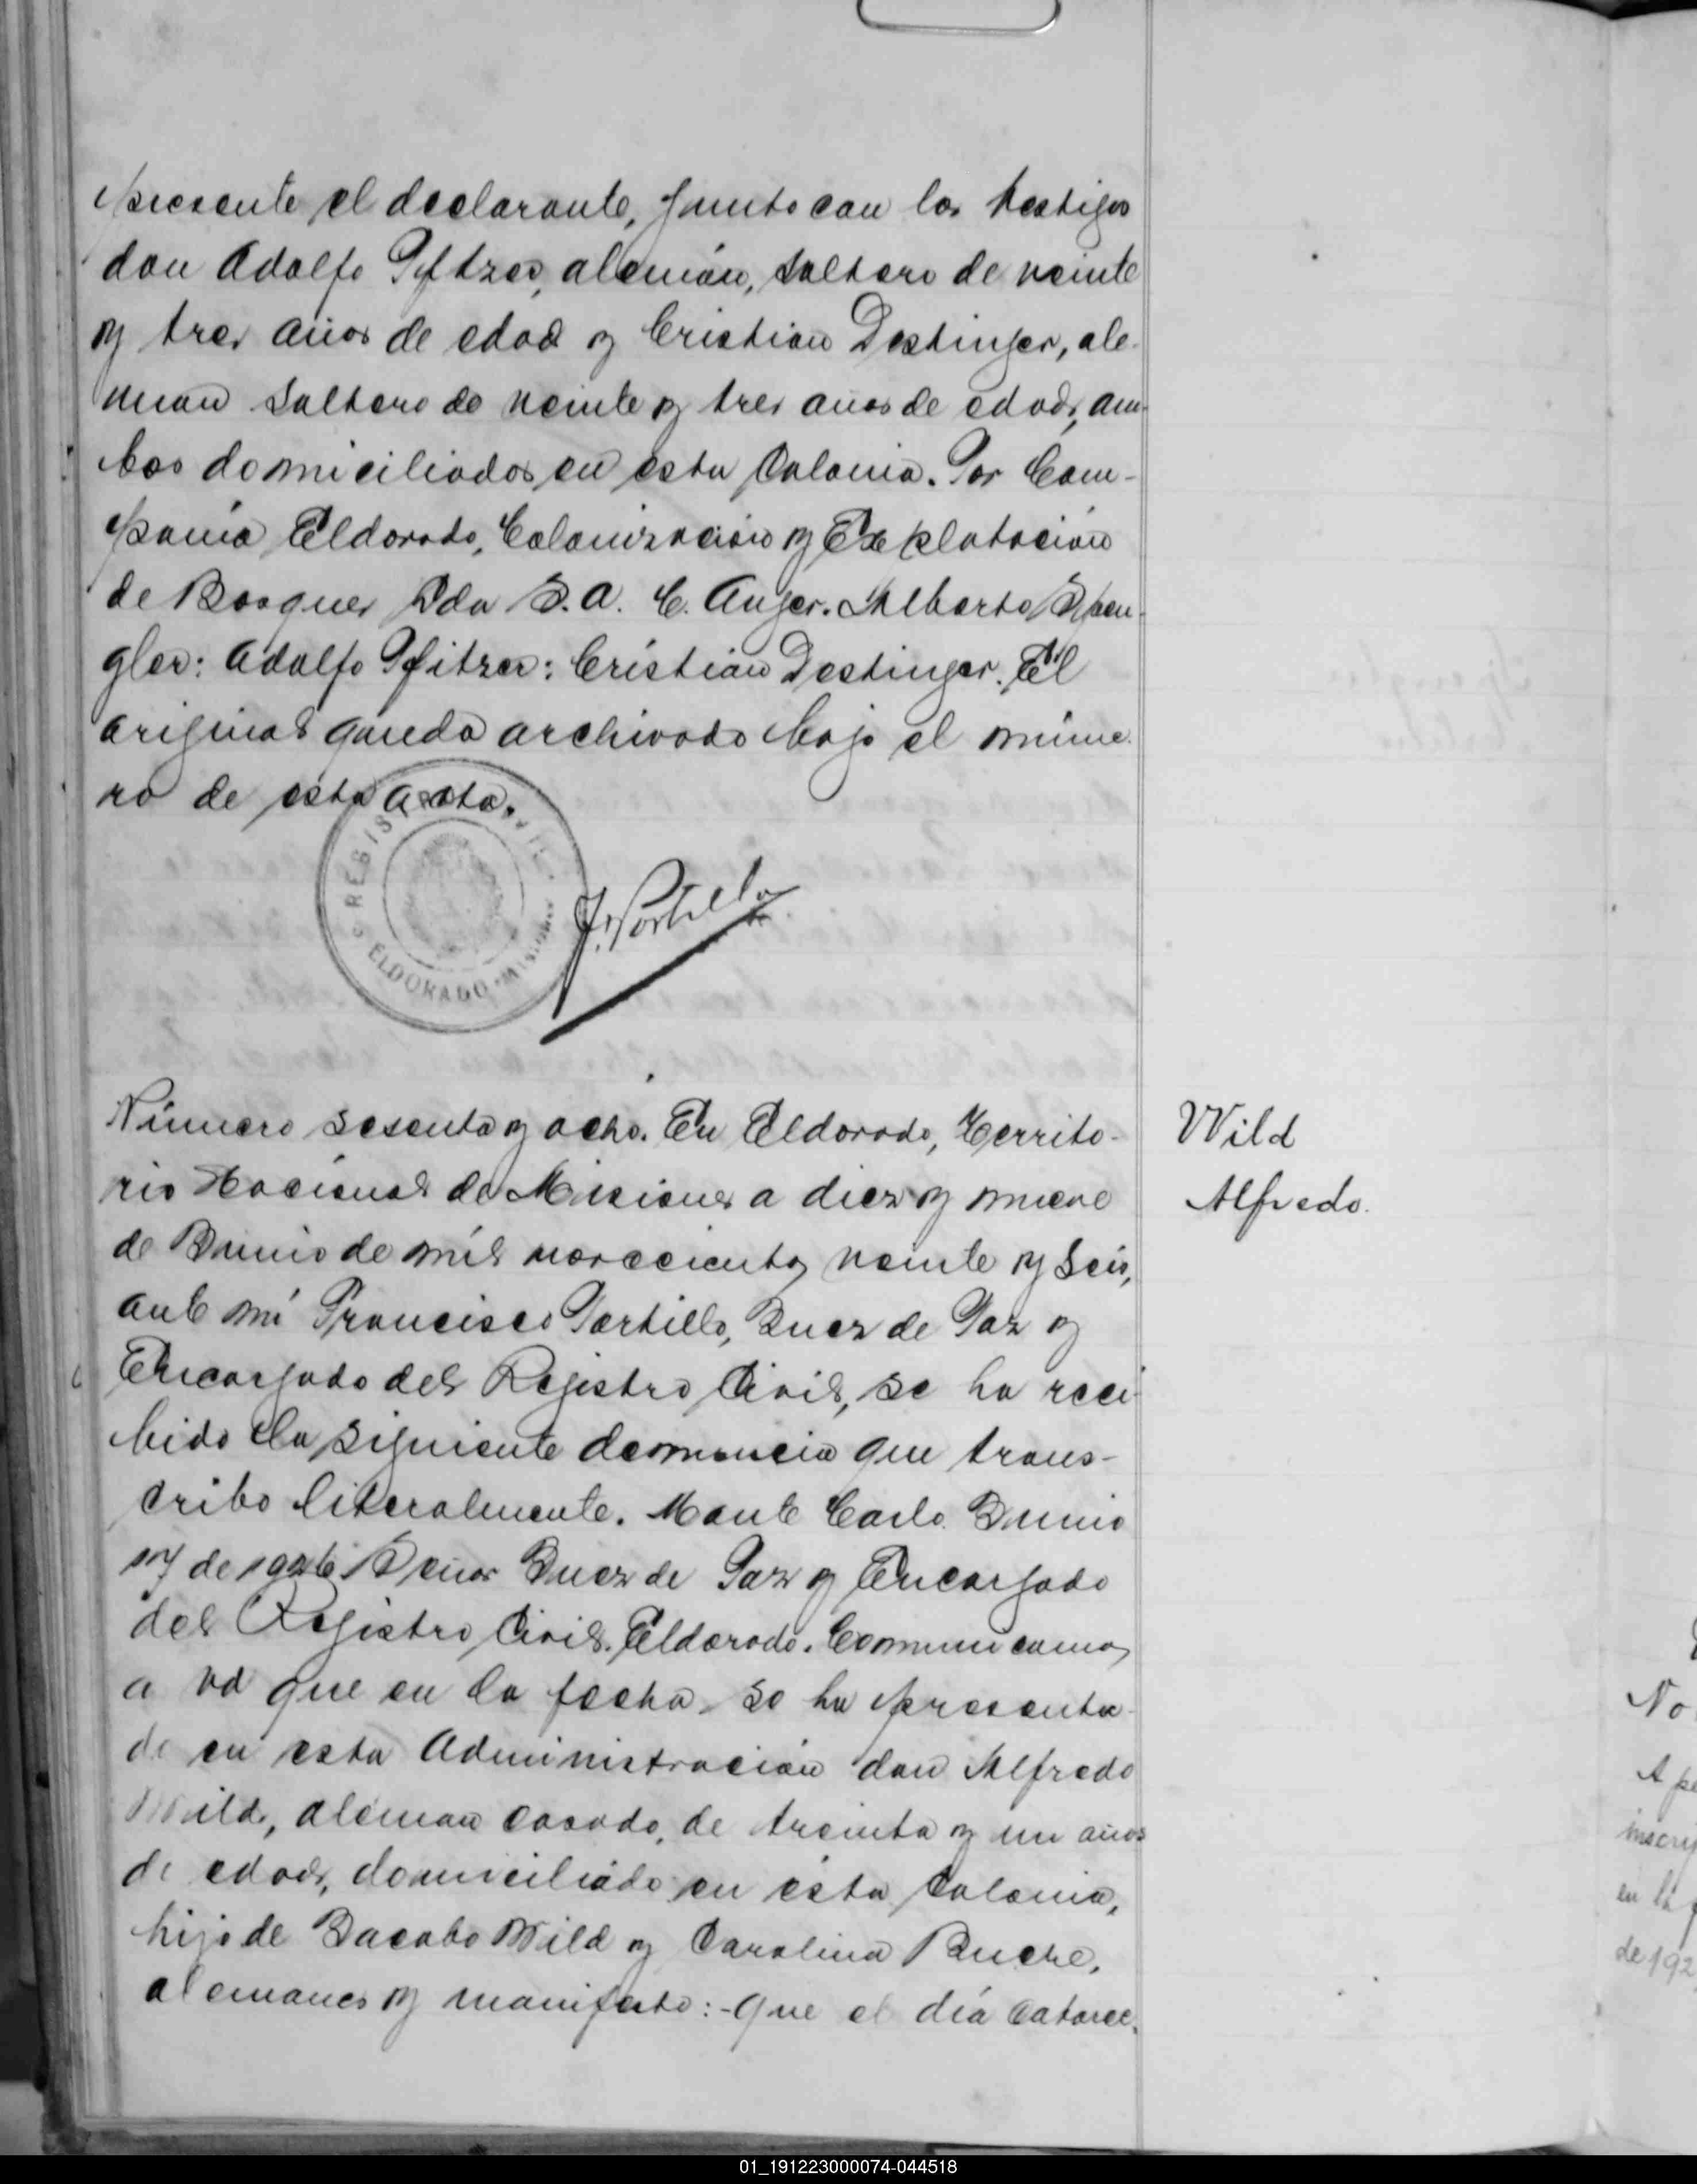 presente el declarante, junto con los testigos
don Adolfo Pfitzer, alemán, soltero de veinte
y tres años de edad y Cristian Destinger, ale-
man soltero de veinte y tres años de edad, am-
bos domiciliados en esta Colonia. Por Com-
pania Eldorado, Colonizacion y Explotación
de Bosques Lda S. A. C. Auger. Alberto Spen-
gler: Adolfo Pfitzer: Cristian Destinger. El
original queda archivado bajo el núme-
ro de esta acta.
REGISTRO CIVIL
ELDORADO - Misiones
F. Portillo
Número sesenta y ocho. En Eldorado, Territo-
rio Nacional de Misiones a diez y nueve
de Junio de mil novecientos veinte y seis,
ante mí Francisco Portillo, Juez de Paz y
Encargado del Registro Civil, se ha reci-
bido la siguiente denuncia que trans-
cribo literalmente. Monte Carlo. Junio
17 de 1926 Señor Juez de Paz y Encargado
del Registro Civil. Eldorado. Comunicamos
a Vd que en la fecha se ha presenta-
do en esta Administración don Alfredo
Wild, aleman casado, de treinta y un años
de edad, domiciliado en ésta Colonia,
hijo de Jacobo Wild y Carolina
alemanes y manifesto: - Que el día catorce
Wild
Alfredo.
No
A pe
inscrip
en la f
de 192
01_191223000074-044518